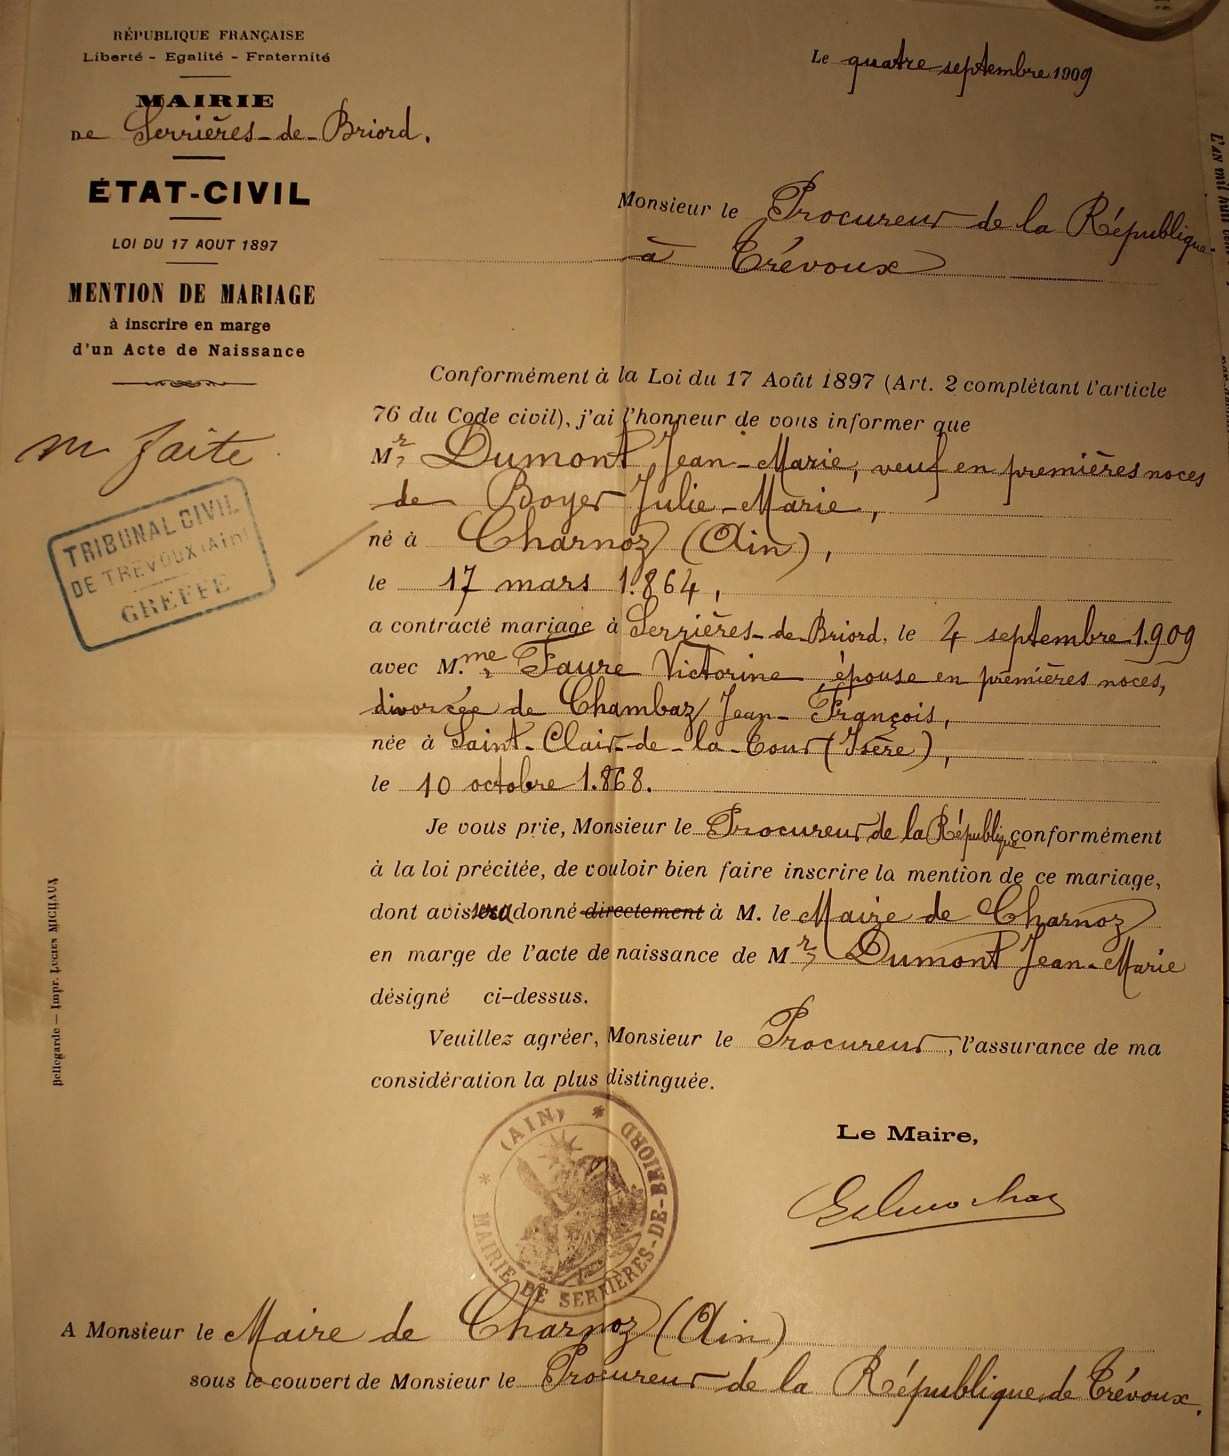 RÉPUBLIQUE FRANÇAISE
Liberté - Egalité - Fraternité
MAIRIE
DE Serrières-de-Briord.
ÉTAT-CIVIL
LOI DU 17 AOUT 1897
MENTION DE MARIAGE
à inscrire en marge
d'un Acte de Naissance
m faite
TRIBUNAL CIVIL
DE TRÉVOUX (AIN)
GREFFE
Le quatre septembre 1909
Monsieur le Procureur de la République
à Trévoux
Conformément à la Loi du 17 Août 1897 (Art. 2 complétant l'article
76 du Code civil), j'ai l'honneur de vous informer que
Mr Dumont Jean-Marie, veuf en premières noces
de Boyer Julie-Marie,
né à Charnoz (Ain),
le 17 mars 1.864,
a contracté mariage à Serrières-de-Briord, le 4 septembre 1.909
avec M.me Faure Victorine épouse en premières noces,
divorcée de Chambaz Jean-François,
née à Saint-Clair-de-la-Tour (Isère),
le 10 octobre 1.868.
Je vous prie, Monsieur le Procureur de la République conformément
à la loi précitée, de vouloir bien faire inscrire la mention de ce mariage,
dont avis sera donné directement à M. le Maire de Charnoz
en marge de l'acte de naissance de Mr Dumont Jean-Marie
désigné ci-dessus.
Veuillez agréer, Monsieur le Procureur, l'assurance de ma
considération la plus distinguée.
Le Maire,
(AIN) * MAIRIE DE SERRIÈRES-DE-BRIORD *
A Monsieur le Maire de Charnoz (Ain)
sous le couvert de Monsieur le Procureur de la République de Trévoux.
Bellegarde — Impr. LUCIEN MICHAUX
L'an mil huit cent